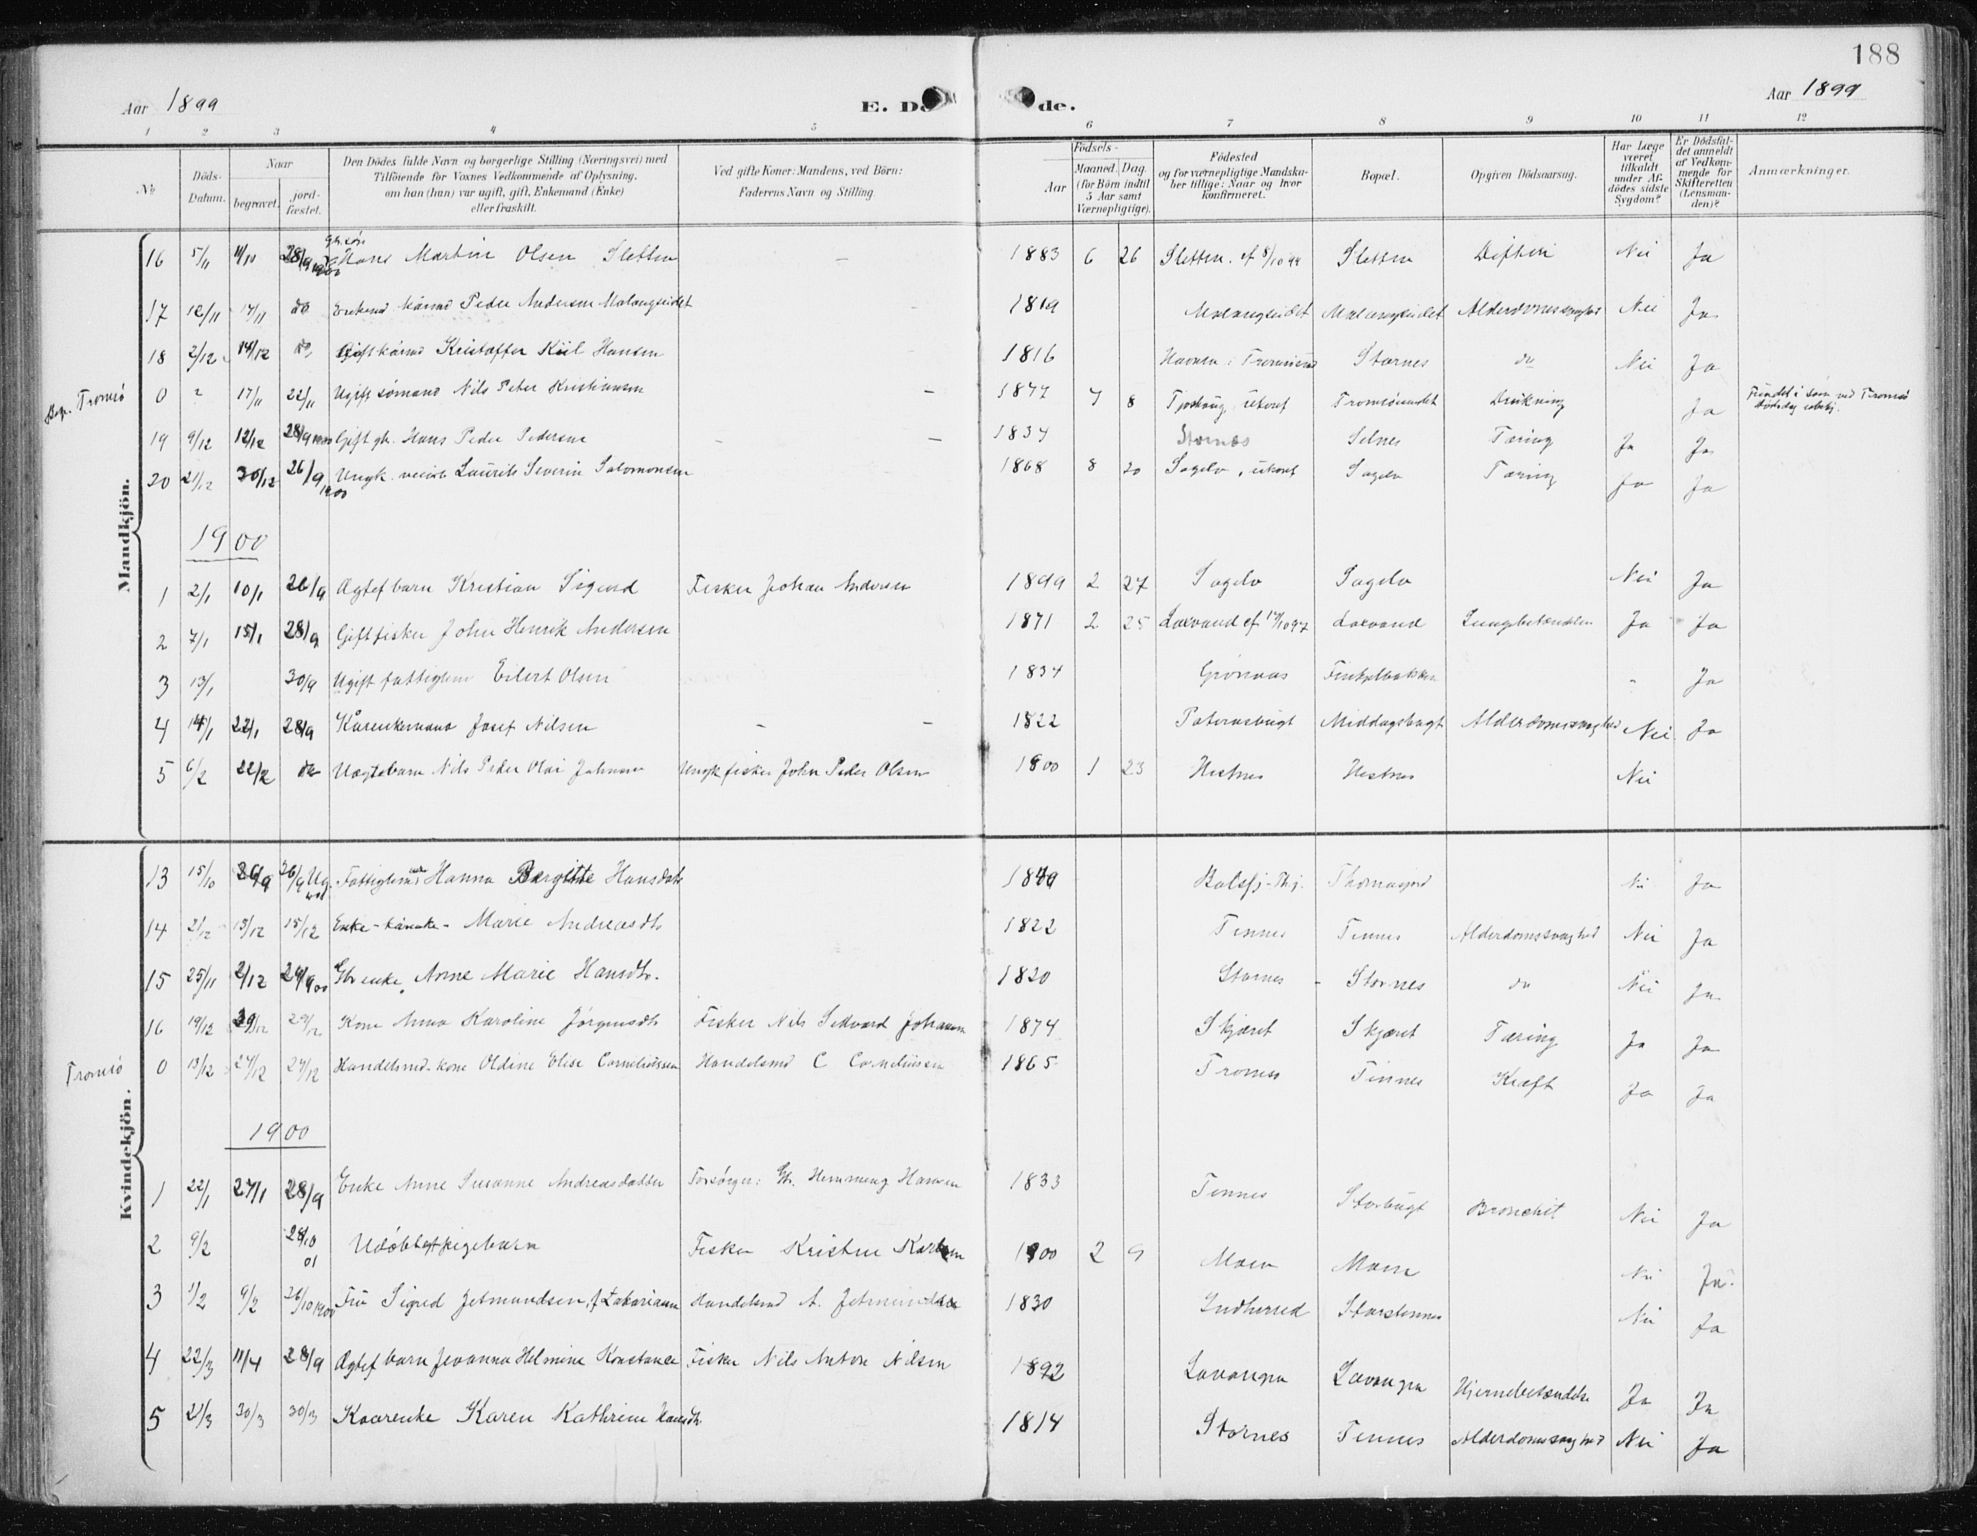 188
Aar 1899
E. Dö de.
Aar 1899
1 2 3 4 5 6 7 8 9 10 11 12
No
Döds-Datum.
Naar
begravet.
jord-fæstet.
Den Dödes fulde Navn og borgerlige Stilling (Næringsvei) med
Tilföiende for Voxnes Vedkommende af Oplysning,
om han (hun) var ugift, gift, Enkemand (Enke)
eller fraskilt.
Ved gifte Koner: Mandens, ved Börn:
Faderens Navn og Stilling.
Födsels-
Aar
Maaned. Dag.
(for Börn indtil
5 Aar samt
Værnepligtige).
Födested
og for værnepligtige Mandska-
ber tillige: Naar og hvor
konfirmeret.
Bopæl.
Opgiven Dödsaarsag.
Har Læge
været
tilkaldt
under Af-
dödes sidste
Sygdom?
Er Dödsfal-
det anmeldt
af Vedkom-
mende for
Skifteretten
(Lensman-
den)?
Anmærkninger.
Mandkjön.
16 5/11 11/10 28/9 1900 Hans Martin Olsen Sletten 1883 6 26 Sletten Sletten Difteri Nei Ja
17 12/11 17/11 do Peder Andersen Malangseidet 1819 Malangseidet Malangseidet Alderdomssvaghed Nei Ja
18 2/12 14/12 do Gift kårmd Kristoffer Kiil Hansen 1816 Stornes do Nei Ja
Tromsö 0 17/11 22/11 Ugift sömand Nils Peter Kristiansen 1877 7 8 ukonf Tromsösundet Drukning Ja
19 9/12 12/12 28/9 1900 Gift gb. Hans Peder Pedersen 1834 Stornes Selnes Tæring Ja Ja
20 21/12 30/12 26/9 1900 Ungk. Laurits Severin Salomonsen 1868 8 20 Sagelv, ukonf Sagelv Tæring Ja Ja
1900
1 2/1 10/1 26/9 Ægtef barn Kristian Sigurd Fisker Johan Andersen 1899 2 27 Sagelv Sagelv Nei Ja
2 7/1 15/1 28/9 Gift fisker John Henrik Andersen 1871 2 25 Laxvand Laxvand Lungebetændelse Ja Ja
3 13/1 30/9 Ugift fattiglem Eilert Olsen 1834 Grönnaas Ja
4 14/1 22/1 28/9 Kårenkemand Josef Nilsen 1822 Middagsbugt Alderdomssvaghed Nei Ja
5 6/2 22/2 do Uægtebarn Nils Peder Olai Johnsen Ungk fisker John Peder Olsen 1900 1 23 Hestnes Hestnes Nei
Kvindekjön.
13 15/10 26/9 26/9 Fattiglem Hanna Bergitte Hansdatr 1849 Balsfj. Thomasjord Nei Ja
14 2/12 13/12 15/12 Enke-kårenke- Marie Andreasdtr 1822 Tennes Tennes Alderdomssvaghed Nei Ja
15 25/11 2/12 29/9 00 Gbr enke, Anne Marie Hansdtr. 1820 Stornes Stornes do Nei Ja
16 19/12 29/12 29/12 Kone Anna Karoline Jörgensdtr Fisker Nils Johansen 1874 Skjæret Skjæret Tæring Ja Ja
Tromsö 0 13/12 27/12 27/12 Handelsmd. kone Oldine Elise Corneliussen Handelsmd C Corneliussen 1865 Tromsö Tennes Kræft Ja Ja
1900
1 22/1 27/1 28/9 Enke Anne Susanne Andreasdatter Forsörger: Gbr. Hemming Hansen 1833 Tennes Storbugt Bronchit Nei Ja
2 9/2 28/10 01 Udöbt pigebarn Fisker Kristen Karlsen 1900 2 9 Moen Moen Nei Ja
3 1/2 9/2 26/10 1900 Fru Sigrid Jetmundsen, f Zakariasen Handelsmd A. Jetmundsen 1830 Indherred Storstennes Nei Ja
4 22/3 11/4 28/9 Ægtef barn Jevanna Helmine Konstance Fisker Nils Anton Nilsen 1892 Lavangen Lavangen Hjernebetændelse Ja Ja
5 21/3 30/3 30/3 Kaarenke Karen Kathrine Hansdtr 1814 Stornes Tennes Alderdomssvaghed Nei Ja